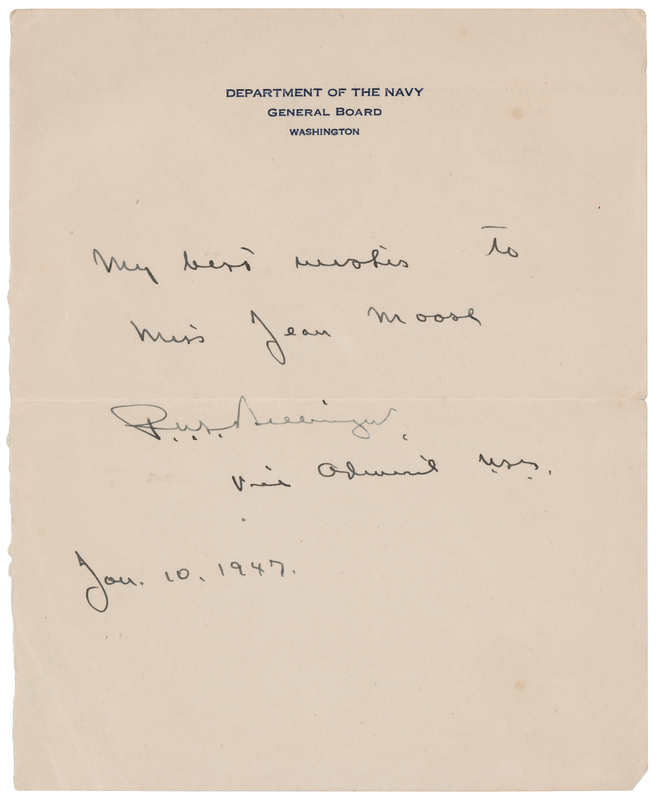 DEPARTMENT OF THE NAVY
GENERAL BOARD
WASHINGTON
My best wishes to
Miss Jean Moose
P.N.L. Bellinger
Vice Admiral U.S.N.
Jan. 10. 1947.